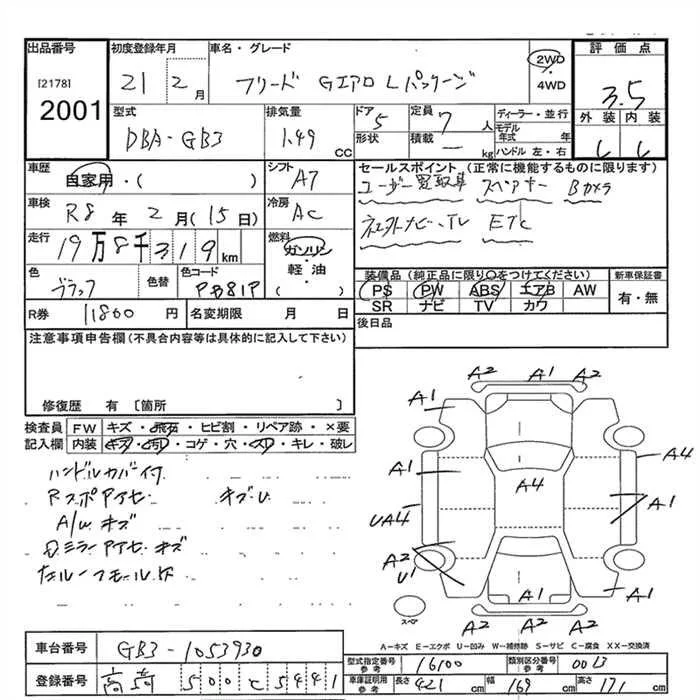 出品番号 初度登録年月 車名・グレード 評価点
[2178] 21 2月 フリード GエアロLパッケージ 2WD・4WD 3.5
2001
型式 排気量 ドア 定員 ディーラー・並行 外装 内装
DBA-GB3 1.49 CC 5 7人 モデル年式 年
形状 積載 kg ハンドル左・右
車歴 シフト セールスポイント (正常に機能するものに限ります)
自家用・( ) AT ユーザー買取車 スペアキー Bカメラ
車検 冷房
R8年2月(15日) AC ナビ・TV ETC
走行 燃料
19万8千319km ガソリン・軽油
色 色替 色コード 装備品(純正品に限り○をつけてください) 新車保証書
ブラック PB81P PS PW ABS エアB AW 有・無
SR ナビ TV カワ
R券 11800円 名変期限 月 日 後日品
注意事項申告欄(不具合内容等は具体的に記入して下さい)
修復歴 有 〔箇所 〕
検査員記入欄 FW キズ・飛石・ヒビ割・リペア跡・×要
内装 キズ・汚レ・コゲ・穴・スレ・キレ・破レ
ハンドルカバー付
Rスポアイセ キズU
A/W キズ
Dミラーアイセ キズ
A2 A1 A2
A1 A1
A1 A4 A4
A1
UA4
A2
U1
A1 A1
A2 A2
スペア
A-キズ E-エクボ U-凹み W-補修跡 S-サビ C-腐食 XX-交換済
車台番号 GB3-1053930
型式指定番号参考 16100 類別区分番号参考 0013
登録番号 500 5441
車庫証明用参考 長さ 421 cm 幅 169 cm 高さ 171 cm